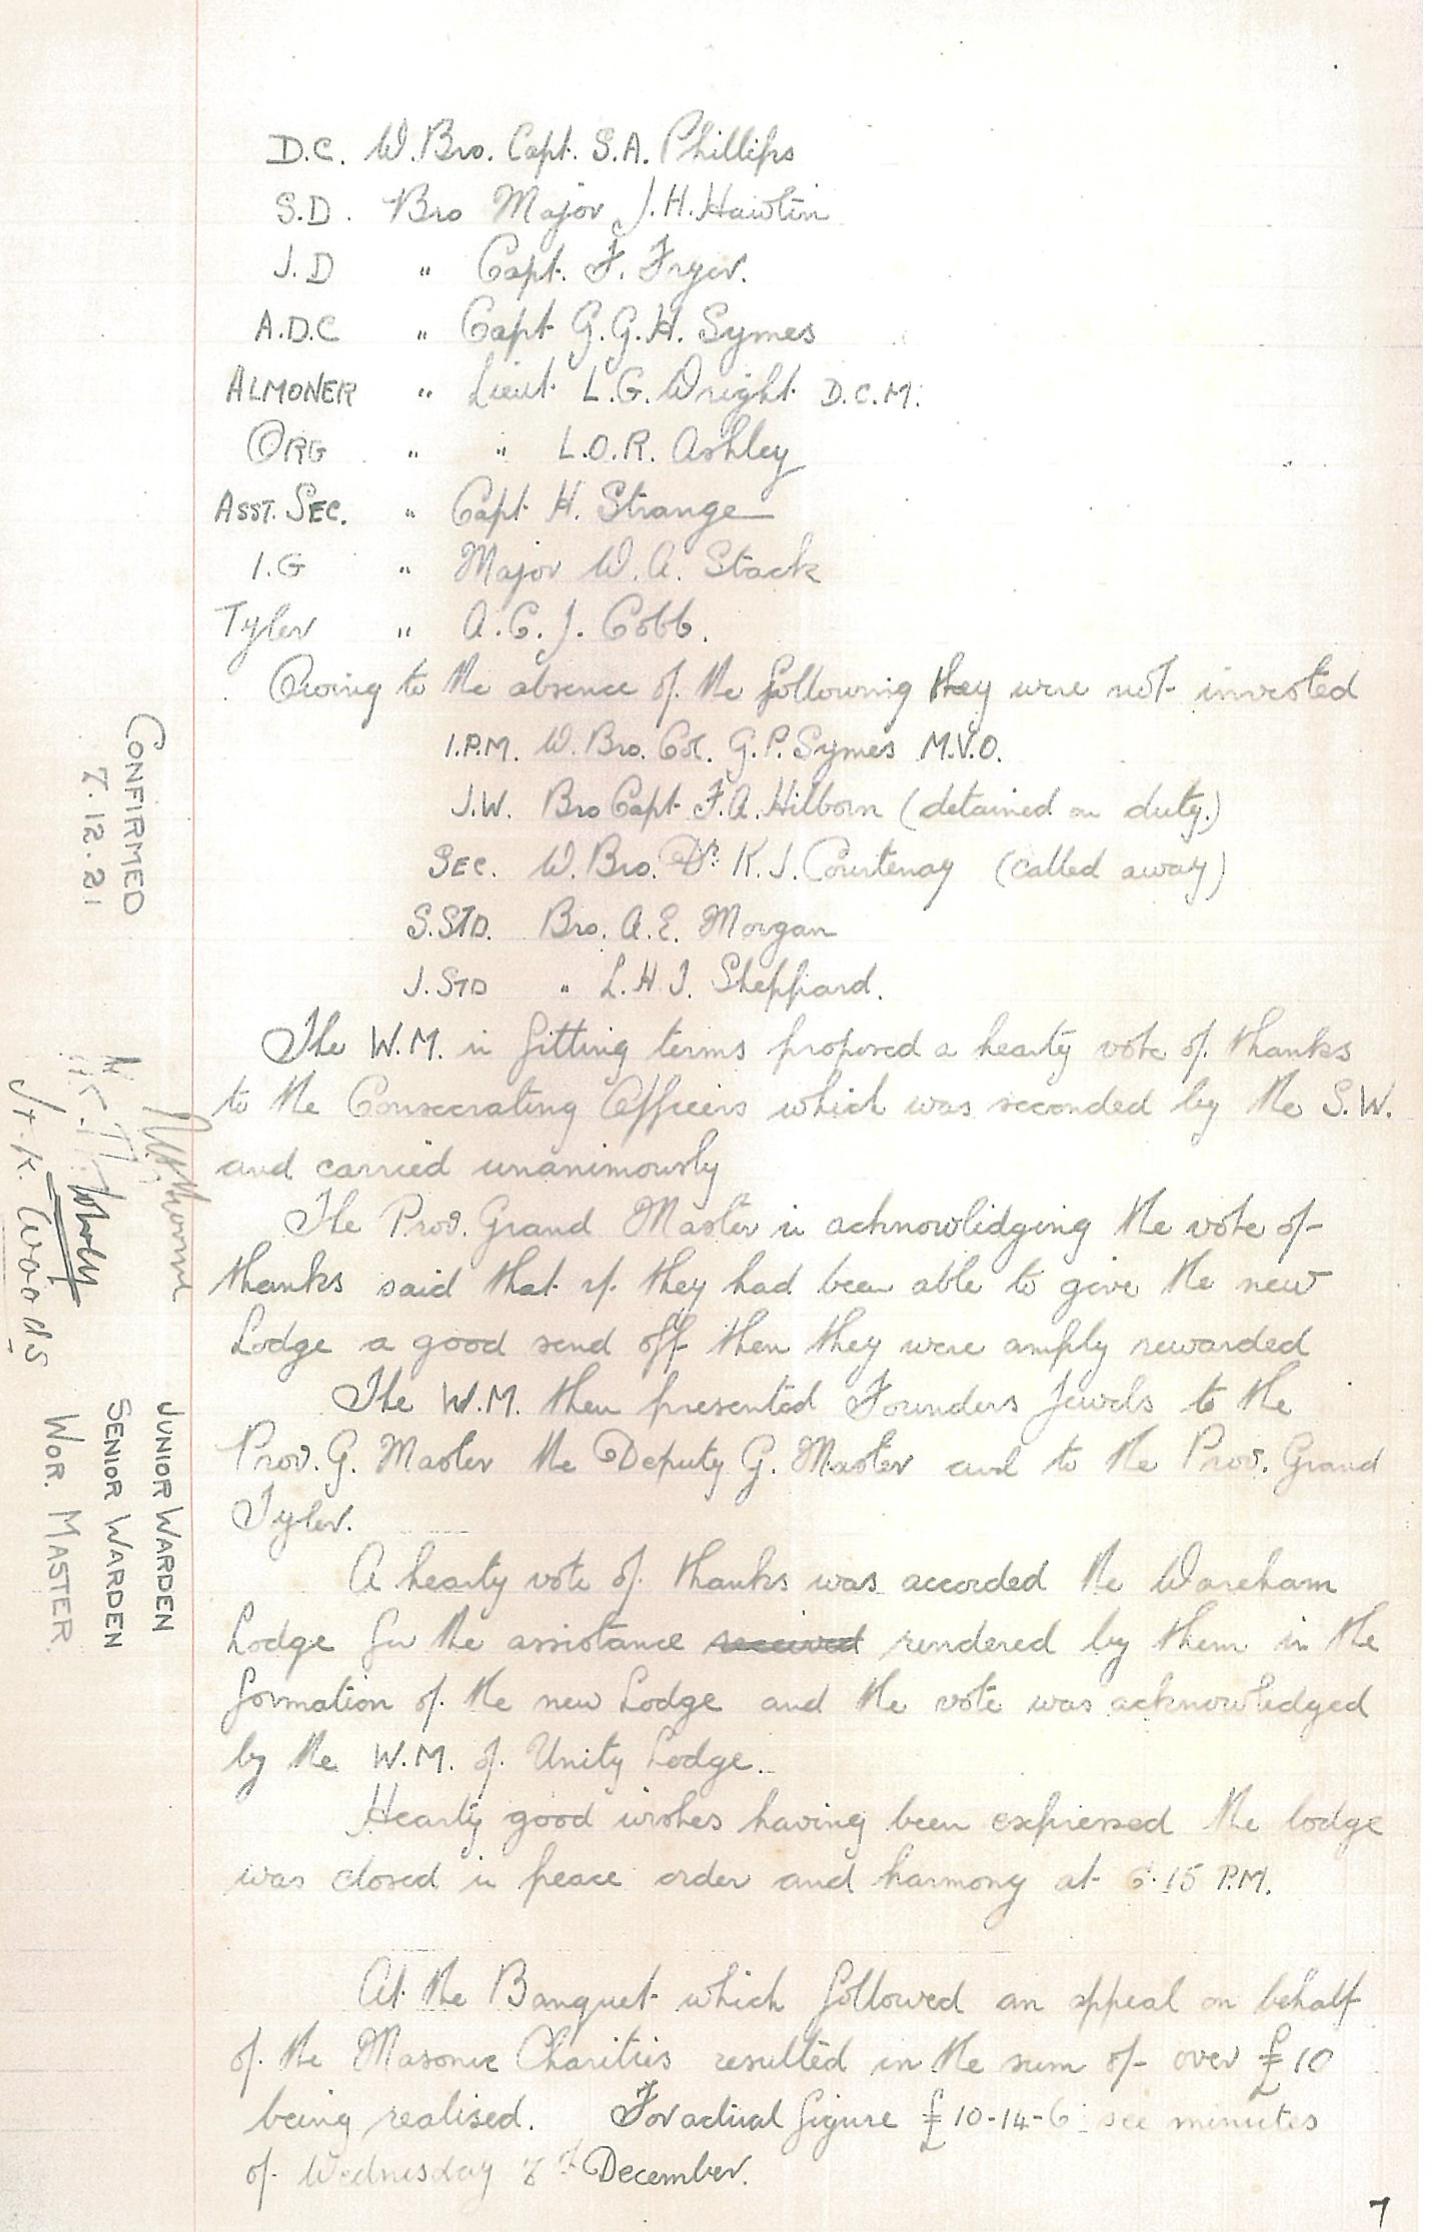 D.C. W. Bro. Capt. S.A. Phillips
S.D. Bro Major J.H. Hawtin
J.D " Capt. F. Fryer.
A.D.C " Capt G.G.H. Symes
ALMONER " Lieut L.G. Wright D.C.M.
ORG " " L.O.R. Ashley
ASST. SEC. " Capt H. Strange
I.G " Major W.A. Stack
Tyler " A.C.J. Cobb.
Owing to the absence of the following they were not invested
I.P.M. W. Bro. Col. G.P. Symes M.V.O.
J.W. Bro Capt F.A. Hilborn (detained on duty.)
SEC. W. Bro. Dr. K.J. Courtenay (called away)
S.STD. Bro. A.E. Morgan
J.STD " L.H.J. Sheppard.
The W.M. in fitting terms proposed a hearty vote of thanks
to the Consecrating Officers which was seconded by the S.W.
and carried unanimously
The Prov. Grand Master in acknowlidging the vote of
thanks said that if they had been able to give the new
Lodge a good send off then they were amply rewarded
The W.M. then presented Founders Jewels to the
Prov. G. Master the Deputy G. Master and to the Prov. Grand
Tyler.
A hearty vote of thanks was accorded the Wareham
Lodge for the assistance received rendered by them in the
formation of the new Lodge and the vote was acknowledged
by the W.M. of Unity Lodge.
Hearty good wishes having been expressed the lodge
was closed in peace order and harmony at 6.15 P.M.
At the Banquet which followed an appeal on behalf
of the Masonic Charities resulted in the sum of over £10
being realised. For actual figure £10-14-6 see minutes
of Wednesday 7th December.
7
CONFIRMED
7.12.21
JUNIOR WARDEN
SENIOR WARDEN
Woods WOR. MASTER.